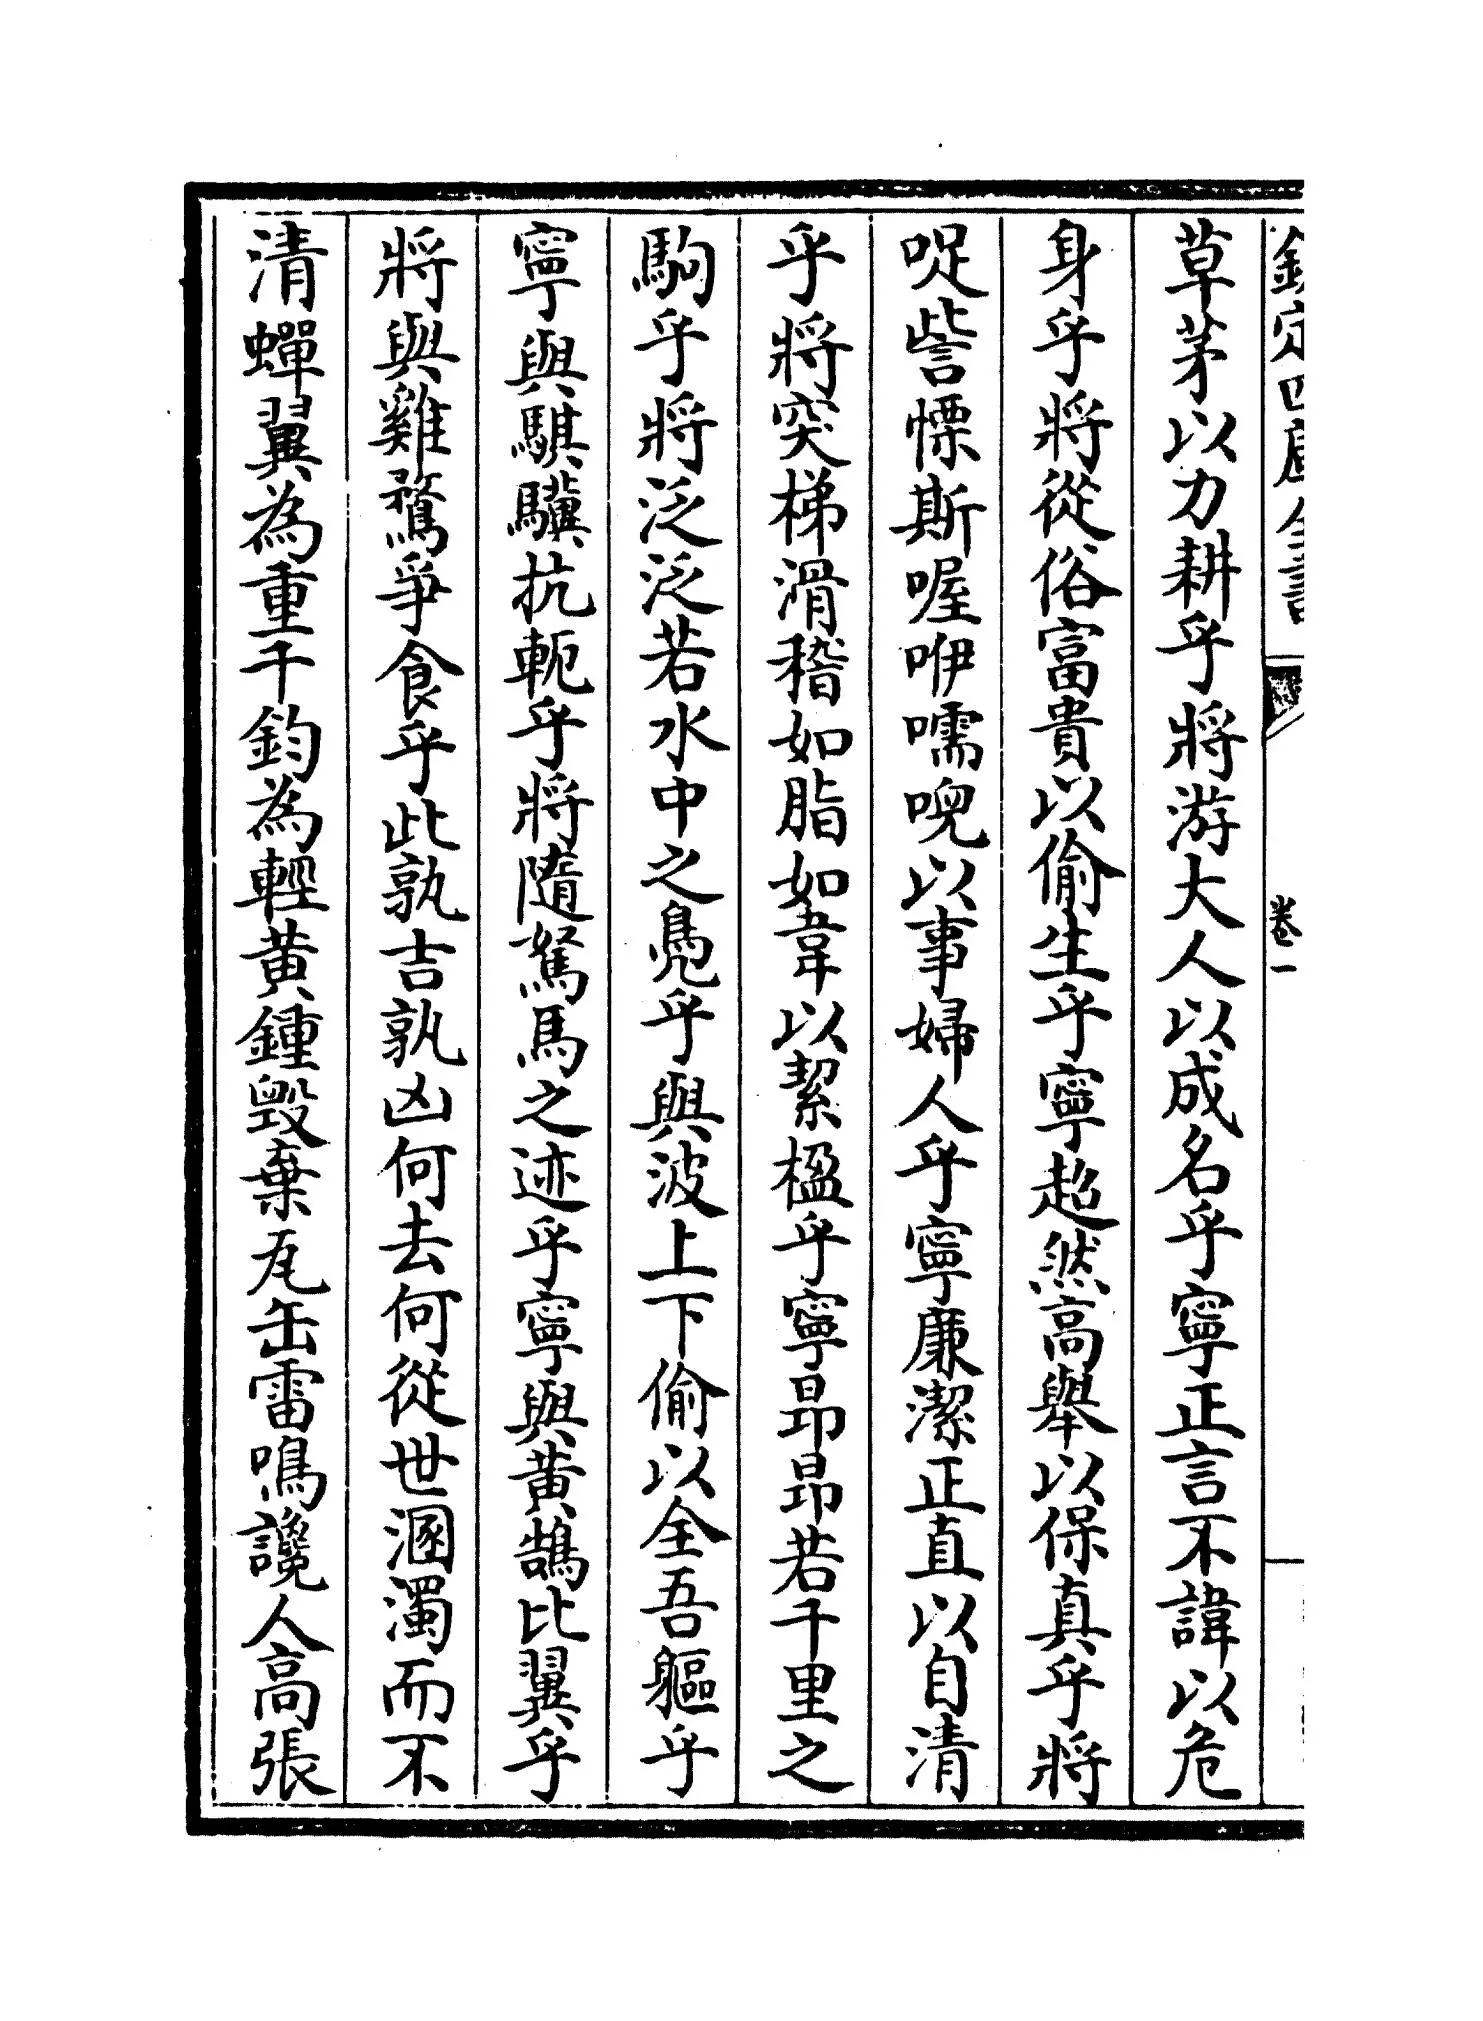 欽定四庫全書
卷一
草茅以力耕乎將游大人以成名乎寧正言不諱以危
身乎將從俗富貴以偷生乎寧超然高舉以保真乎將
哫訾慄斯喔咿嚅唲以事婦人乎寧廉潔正直以自清
乎將突梯滑稽如脂如韋以絜楹乎寧昂昂若千里之
駒乎將泛泛若水中之鳧乎與波上下偷以全吾軀乎
寧與騏驥抗軛乎將隨駑馬之迹乎寧與黃鵠比翼乎
將與雞鶩爭食乎此孰吉孰凶何去何從世溷濁而不
清蟬翼為重千鈞為輕黃鍾毀棄瓦缶雷鳴讒人高張